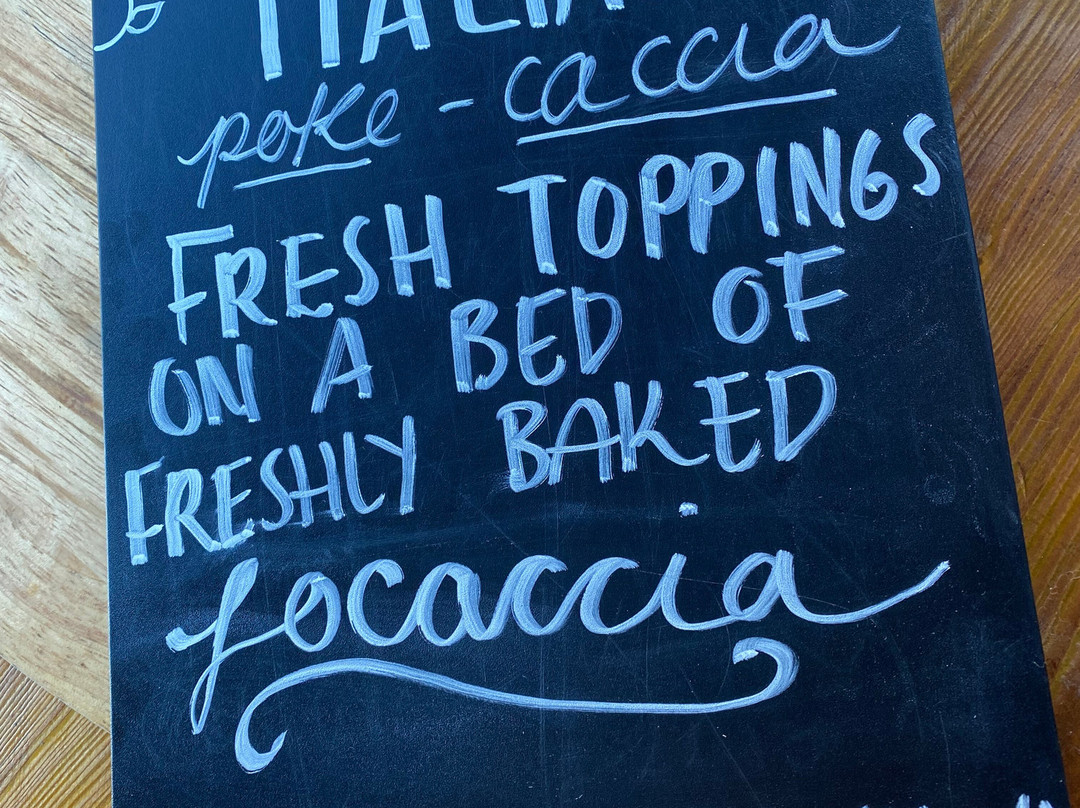 ITALIA
poke - caccia
FRESH TOPPINGS
ON A BED OF
FRESHLY BAKED
focaccia